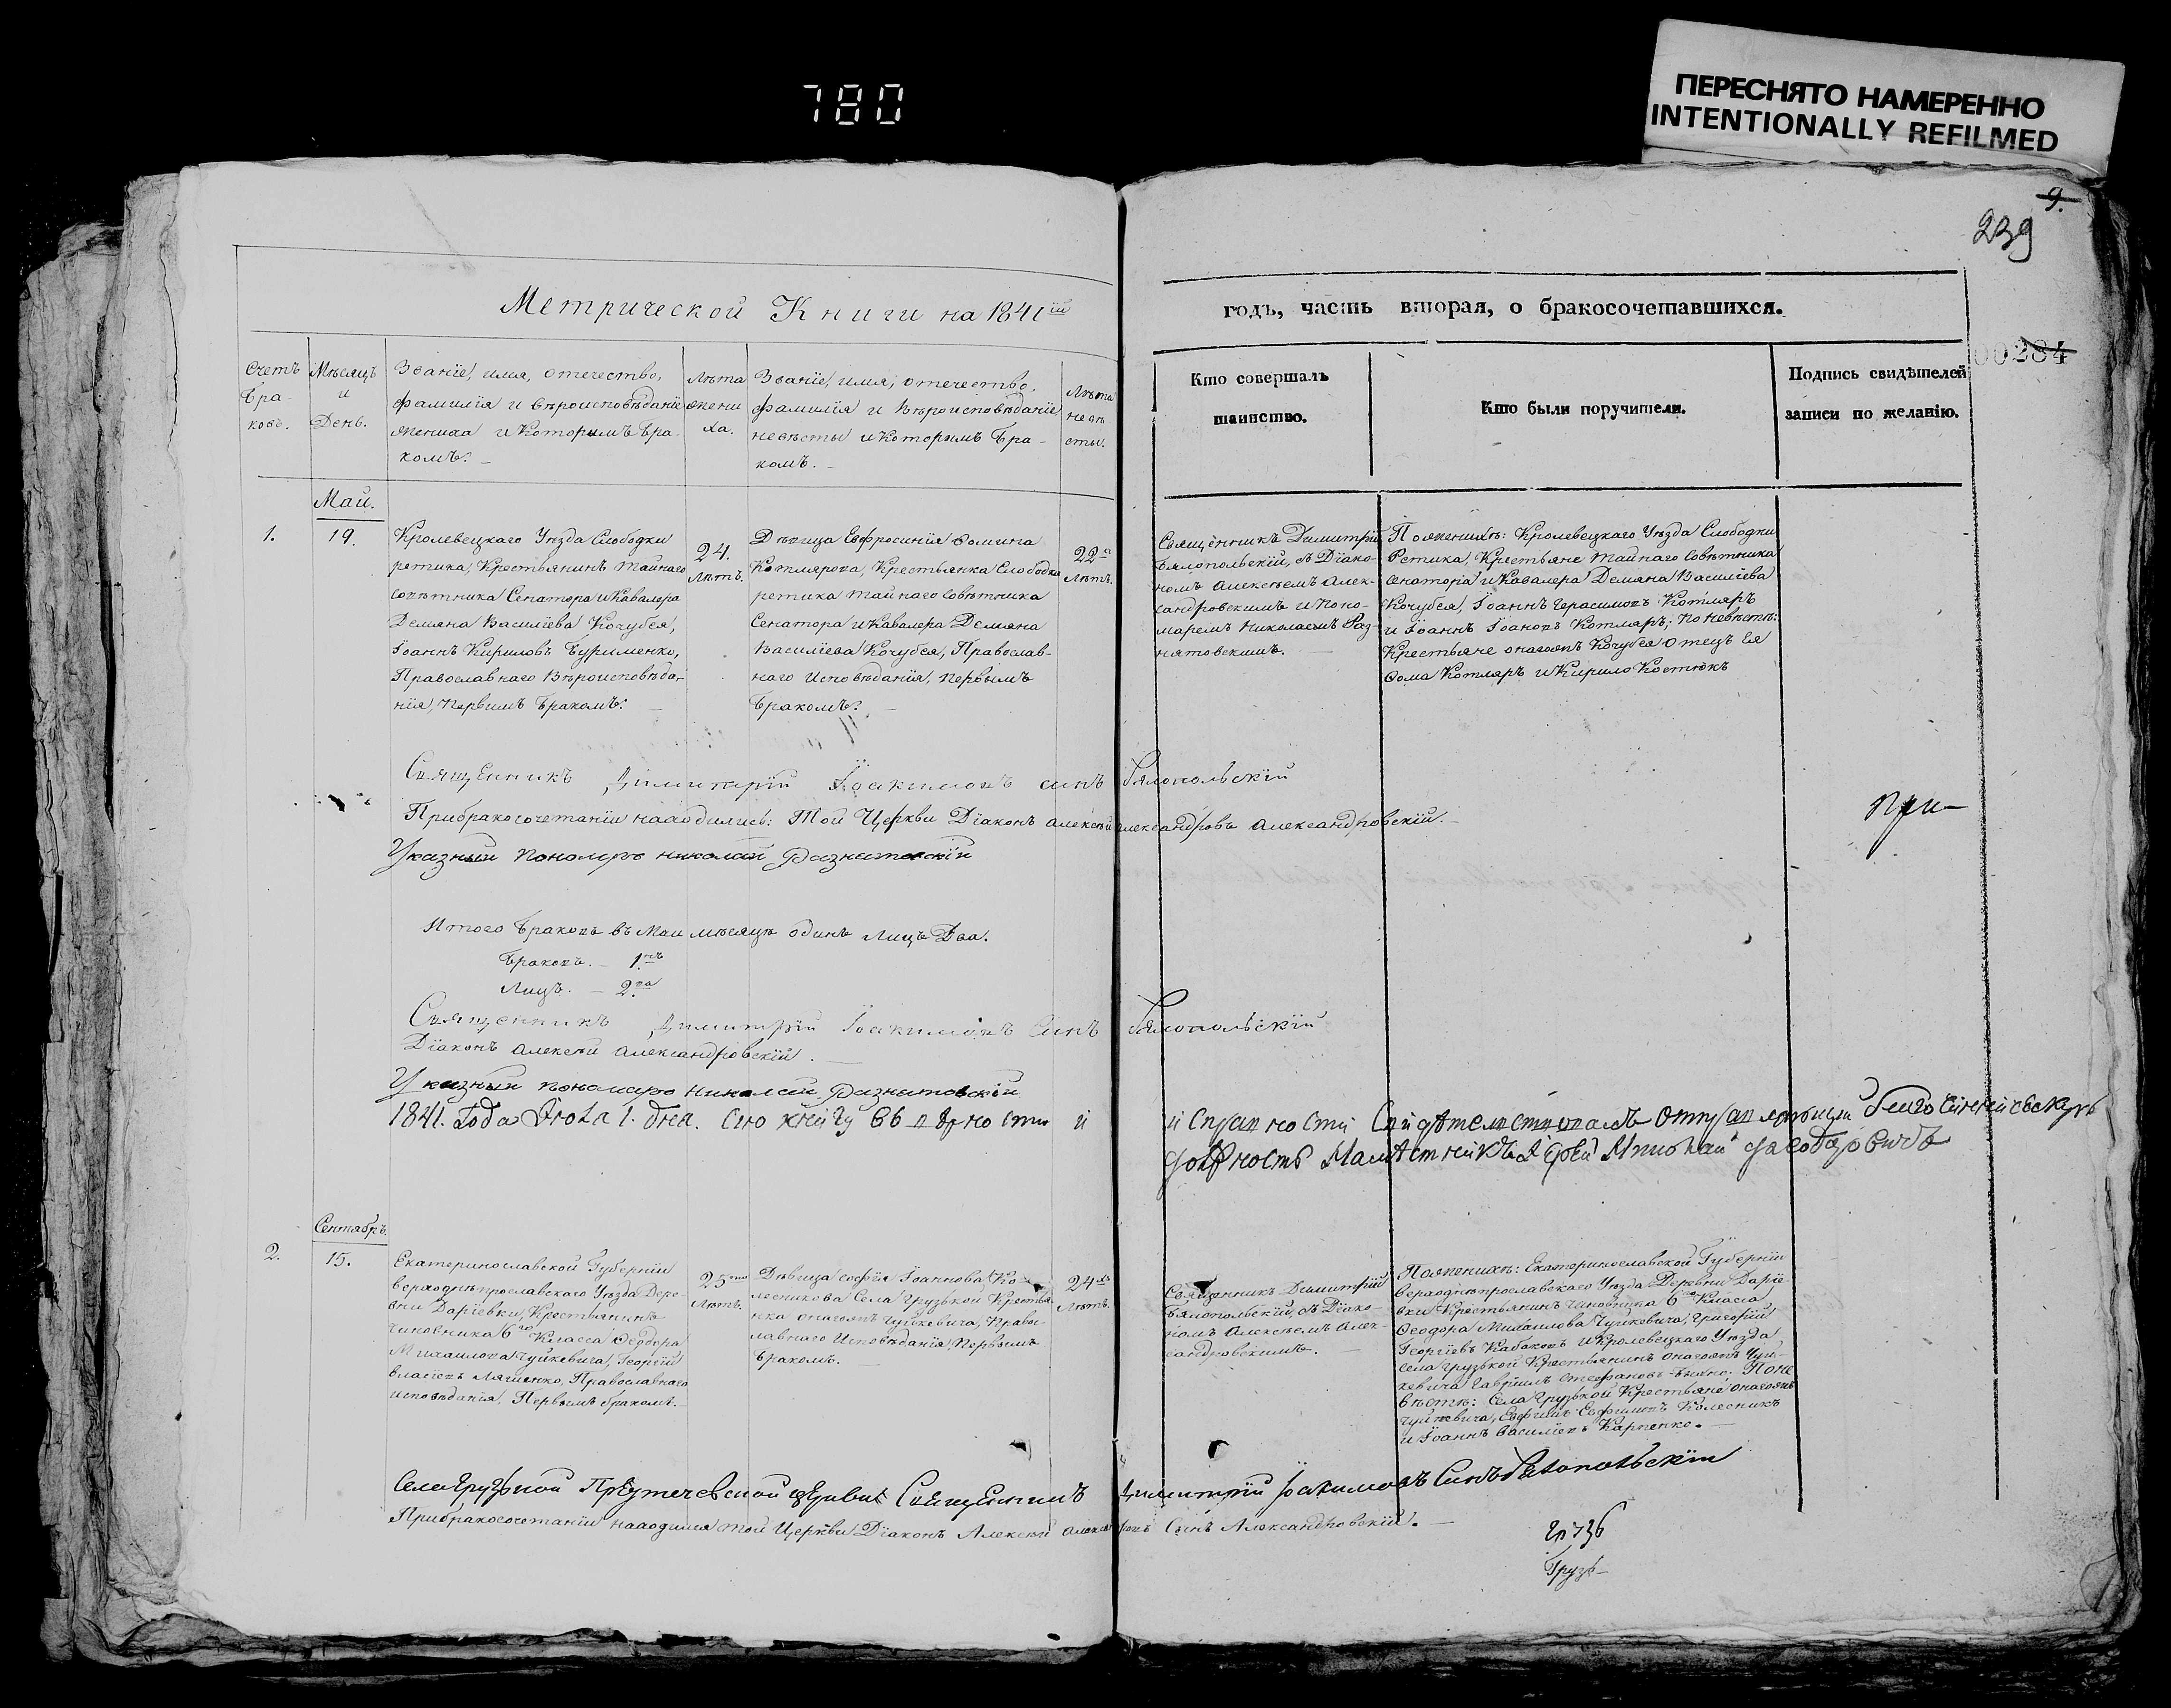 780
ПЕРЕСНЯТО НАМЕРЕННО
INTENTIONALLY REFILMED
9.
239
00284
Метрической Книги на 1841ій
годъ, часть вторая, о бракосочетавшихся.
Счетъ
бра-
ковъ.
Мѣсяцъ
и
День.
Званіе, имя, отечество,
фамилія и вѣроисповѣданіе
жениха и которымъ бра-
комъ.
Лѣта
жени
ха.
Званіе, имя, отечество,
фамилія и вѣроисповѣданіе
невѣсты и которымъ бра-
комъ.
Лѣта
невѣ
сты.
Кто совершалъ
таинство.
Кто были поручители.
Подпись свидѣтелей
записи по желанію.
Май.
1.
19.
Кролевецкаго Уѣзда Слободки
ретика, Крестьянинъ Тайнаго
Совѣтника Сенатора и Кавалера
Демяна Василіева Кочубея,
Іоаннъ Кириловъ Бурименко,
Православнаго Вѣроисповѣда-
нія, Первымъ бракомъ.
24.
Лѣтъ.
Дѣвица Евфросинія Ѳомина
Котлярова, Крестьянка Слободки
ретика Тайнаго Совѣтника
Сенатора и Кавалера Демяна
Василіева Кочубея, Православ-
наго Исповѣданія, первымъ
бракомъ.
22а
Лѣтъ.
Священникъ Димитрій
Бялопольскій, съ Діако-
номъ Алексѣемъ Алек-
сандровскимъ и Поно-
маремъ Николаемъ Раз-
нятовскимъ.
По женихѣ: Кролевецкаго Уѣзда Слободки
Ретика, Крестьяне Тайнаго Совѣтника
Сенатора и Кавалера Демяна Василіева
Кочубея, Іоаннъ Герасимовъ Котляръ
и Іоаннъ Іоановъ Котляръ; По невѣстѣ:
Крестьяне онагожъ Кочубея отецъ Ея
Ѳома Котляръ и Кирило Костюкъ
Священникъ Димитрій Іоакимовъ синъ Бялопольскій
При бракосочетаніи находились: Той Церкви Діаконъ Алексѣй Александровъ Александровскій.
при-
Указный Пономарь Николай Разнатовскій
Итого браковъ въ Маи мѣсяцѣ одинъ Лицъ Два.
Браковъ. - 1нъ
Лицъ. - 2ва
Священникъ Димитрій Іоакимовъ Синъ Бялопольскій
Діаконъ Алексѣй Александровскій.
Указный Пономарь Николай Разнатовскій
1841. Года Іюля 1. дня. Сію книгу въ вѣрности и
исправности Свидѣтелствовалъ
Сентябрь.
2.
15.
Екатеринославской Губерніи
верходнѣпрославскаго Уѣзда Дере-
вни Даріевки, Крестьянинъ
чиновника 6го Класса Ѳеодора
Михаилова Чуйкевича, Георгій
Власіевъ Ляшенко, Православнаго
Исповѣданія, Первымъ бракомъ.
25
Лѣтъ.
Дѣвица Софія Іоаннова Ко-
лесникова Села Грузькой Крестья-
нка онагожъ Чуйкевича, Право-
славнаго Исповѣданія, Первымъ
бракомъ.
24
Лѣтъ.
Священникъ Димитрій
Бялопольскій, съ Діако-
номъ Алексѣемъ Алек-
сандровскимъ.
По женихѣ: Екатеринославской Губерніи
верходнѣпрославскаго Уѣзда Деревни Даріе-
вки Крестьянинъ чиновника 6го Класса
Ѳеодора Михаилова Чуйкевича, Григорій
Георгіевъ Кабаковъ и Кролевецкаго Уѣзда
села Грузькой Крестьянинъ онагожъ Чуй-
кевича Гавріилъ Стефановъ. По не
вѣстѣ: Села Грузькой Крестьяне онагожъ
Чуйкевича, Евфимъ Евфимовъ Колесникъ
и Іоаннъ Василіевъ Карпенко.
Села Грузской Предтечевской Церкви Священникъ Димитрій Іоакимовъ Синъ Бялопольскій
При бракосочетаніи находился той Церкви Діаконъ Алексѣй Синъ Александровскій.
Грузь-